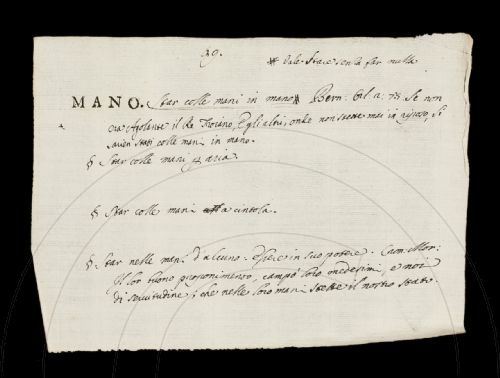 29.
# Vale Stare senza far nulla
MANO. Star colle mani in mano # Bern: Orl. 2. Se non
era Agolante il Re Troiano, e gli altri, onde non stette mai in riposo, si
sarien stati colle mani in mano.
§ Star colle mani aria.
§ Star colle mani a cintola.
§ Star nelle mani d'alcuno. Essere in suo potere. Cron: Mor:
Il lor buono proponimento, campò loro medesimi, e noi
di servitudine che nelle loro mani stette il nostro stato.